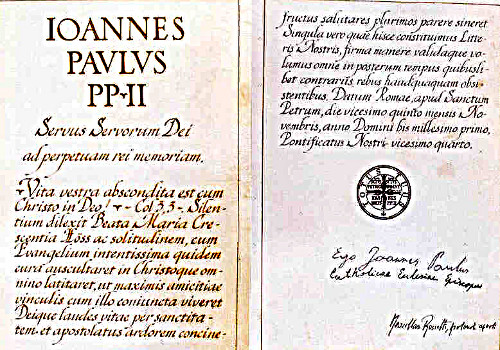 IOANNES
PAVLVS
PP·II
Servus Servorum Dei
ad perpetuam rei memoriam.
Vita vestra abscondita est cum
Christo in Deo! - Col 3,3 - Silen-
tium dilexit Beata Maria Cre-
scentia Höss ac solitudinem, cum
Evangelium intentissima quidem
cura auscultaret in Christoque om-
nino latitaret, ut maximis amicitiae
vinculis cum illo coniuncta viveret
Deique laudes vitae per sanctita-
tem et apostolatus ardorem concine-
fructus salutares plurimos parere sineret
Singula vero quae hisce constituimus Litte-
ris Nostris, firma manere validaque vo-
lumus omne in posterum tempus quibusli-
bet contrariis rebus haudquaquam obsi-
stentibus. Datum Romae, apud Sanctum
Petrum, die vicesimo quinto mensis No-
vembris, anno Domini bis millesimo primo,
Pontificatus Nostri vicesimo quarto.
Ego Joannes Paulus
Catholicae Ecclesiae Episcopus